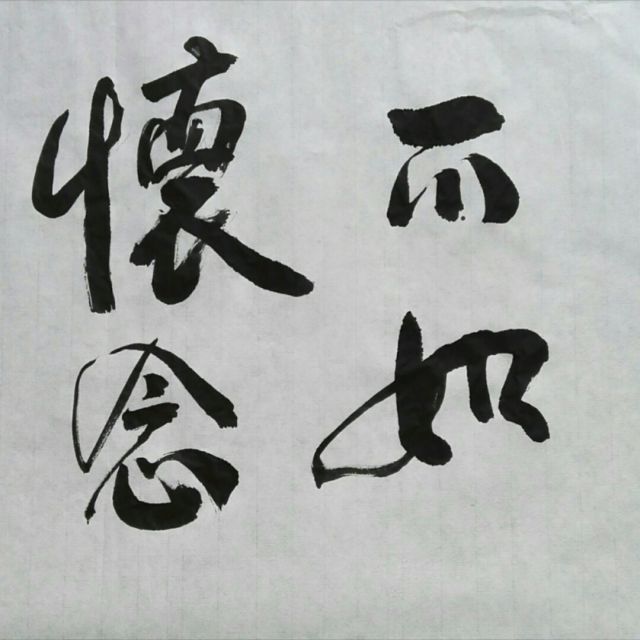 不如
懷念